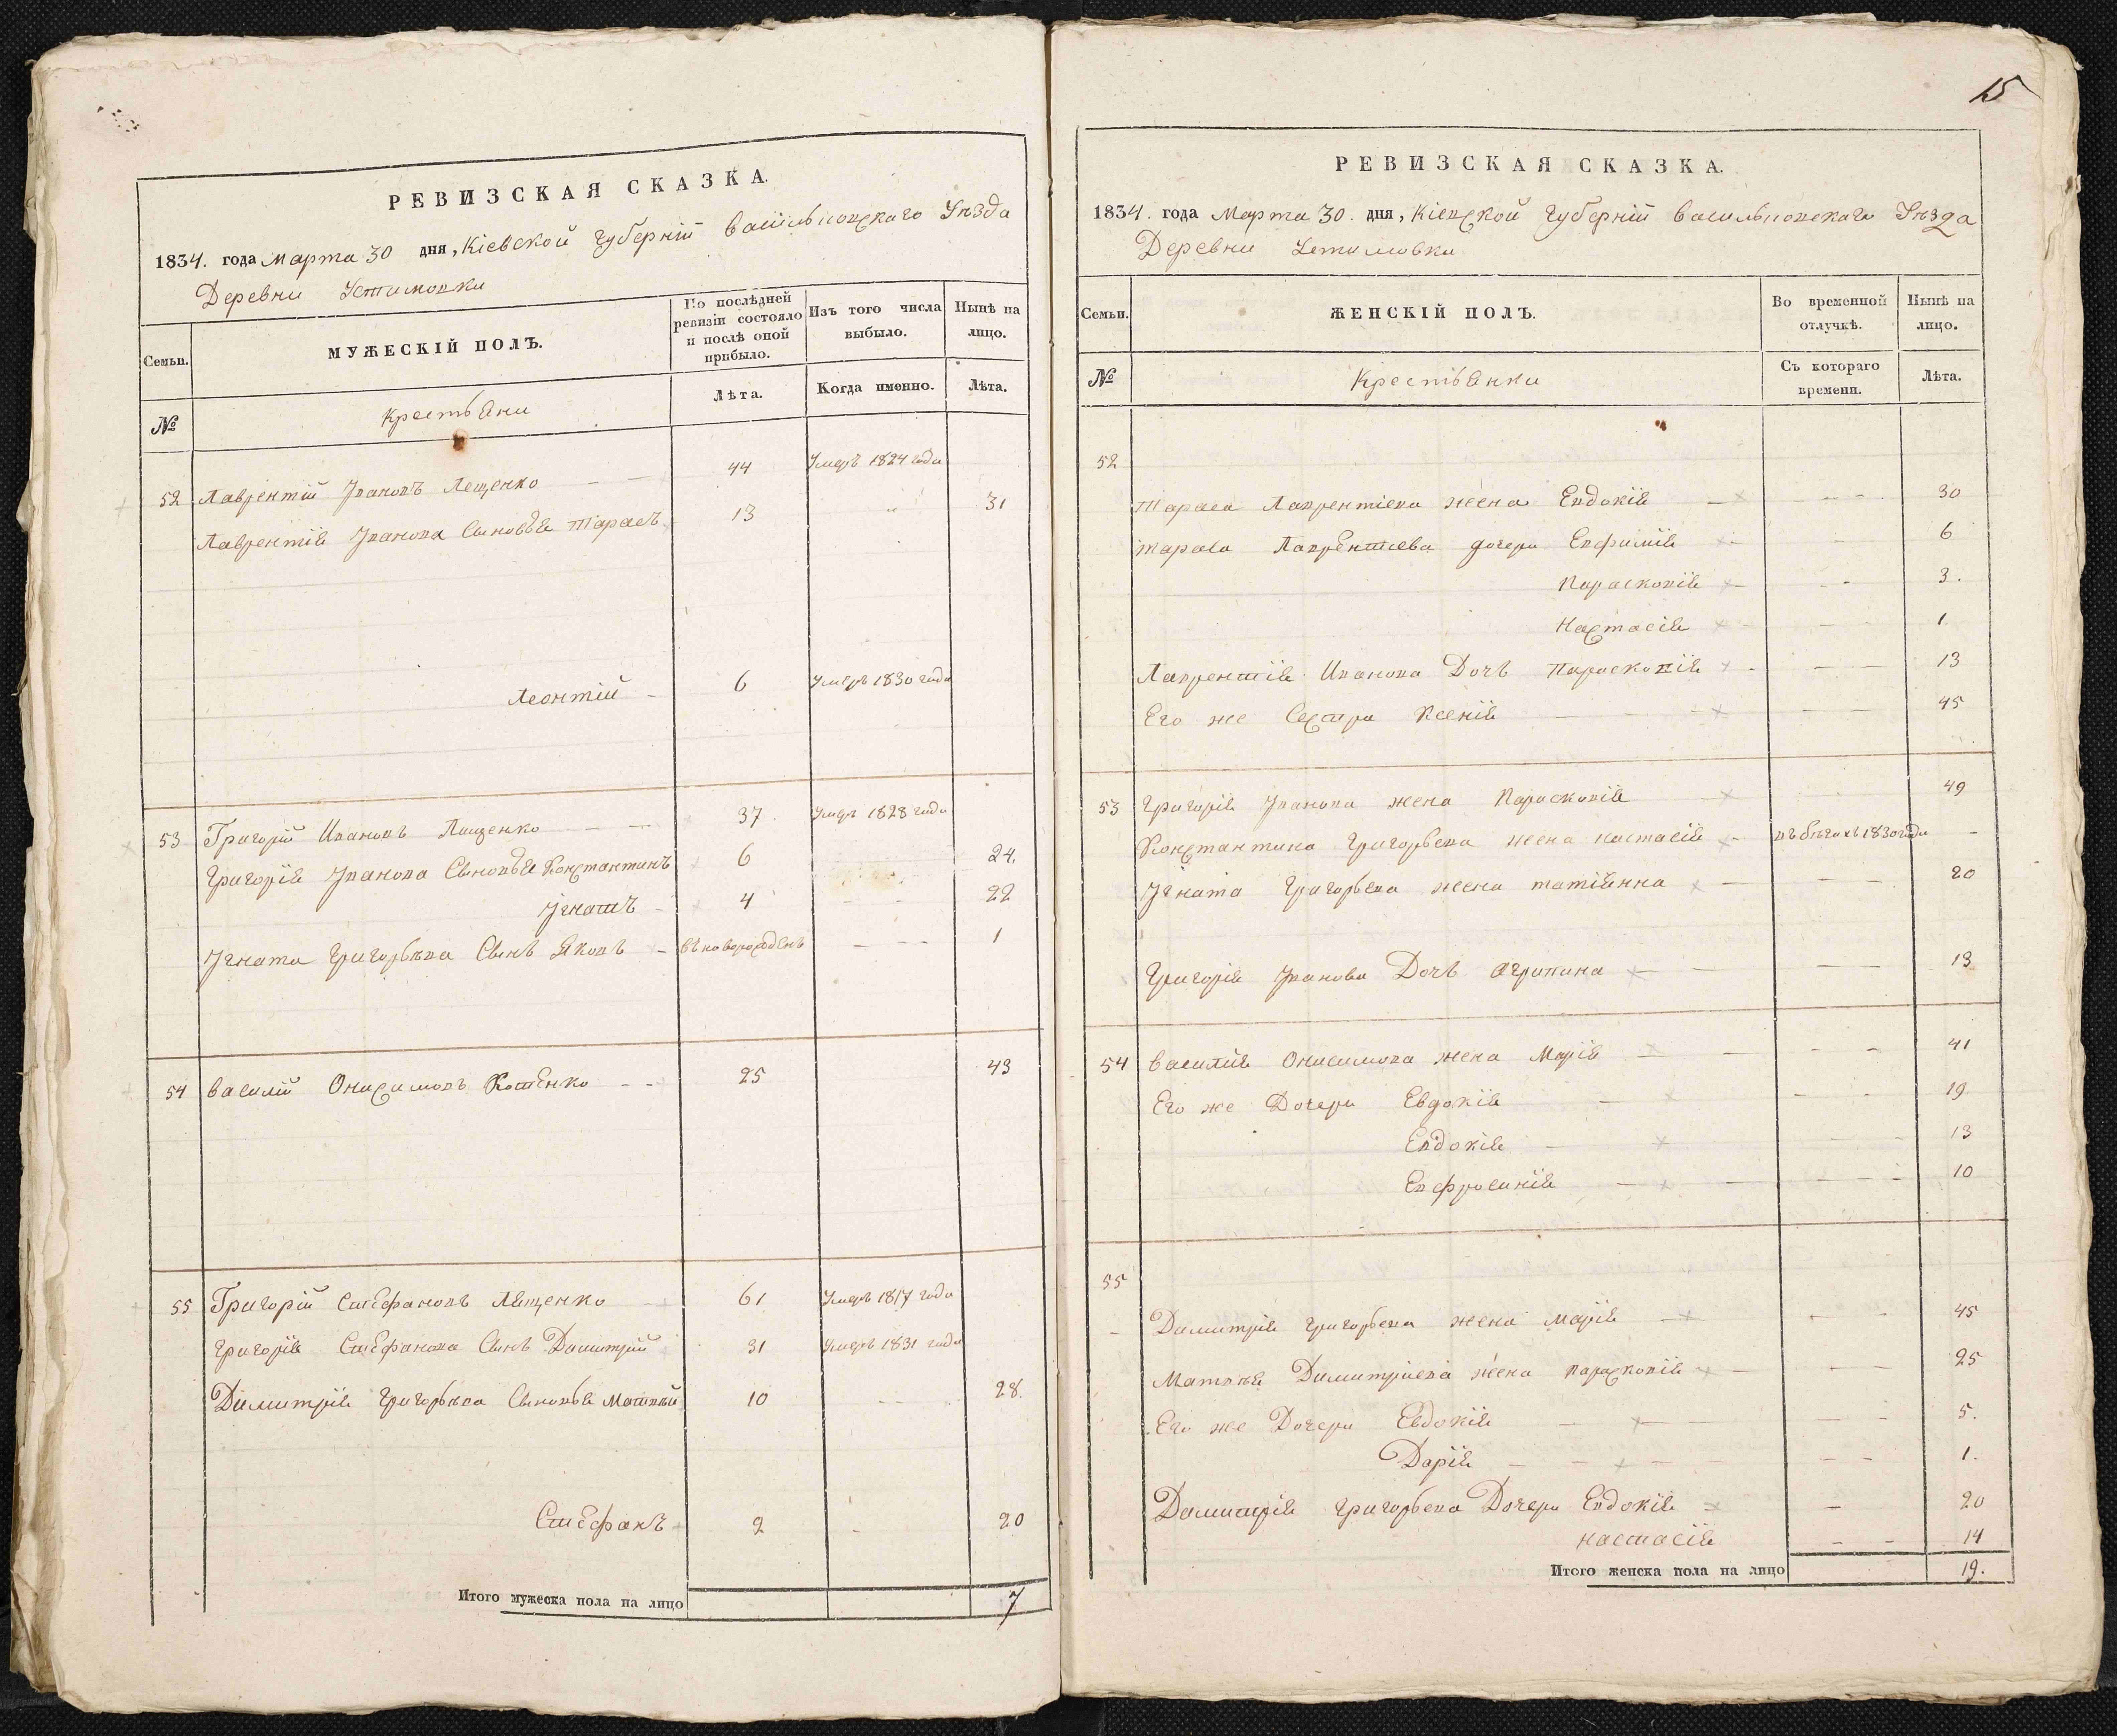 РЕВИЗСКАЯ СКАЗКА.
1834. года Марта 30 дня, Кіевской губерніи Васильковскаго Уезда
Деревни Устимовки
Семьи.
МУЖЕСКІЙ ПОЛЪ.
По послѣдней ревизіи состояло и послѣ оной прибыло.
Изъ того числа выбыло.
Нынѣ на лицо.
№
Крестьяни
Лѣта.
Когда именно.
Лѣта.
52 Лаврентій Ивановъ Лещенко 44 Умеръ 1824 года
Лаврентія Иванова Сыновья Тарасъ 13 31
Леонтій 6 Умеръ 1830 года
53 Григорій Ивановъ Лещенко 37 Умеръ 1828 года
Григорія Иванова Сыновья Константинъ 6 24.
Игнатъ 4 22
Игната Григорьева Сынъ Яковъ въ новорожденъ 1
54 Василій Онисимовъ Котенко 25 43
55 Григорій Стефановъ Лещенко 61 Умеръ 1817 года
Григорія Стефанова Сынъ Димитрій 31 Умеръ 1831 года
Димитрія Григорьева Сыновья Матвѣй 10 28.
Стефанъ 2 20
Итого мужеска пола на лицо 7
15
РЕВИЗСКАЯ СКАЗКА.
1834. года Марта 30. дня, Кіевской губерніи Васильковскаго Уезда
Деревни Устимовки
Семьи.
ЖЕНСКІЙ ПОЛЪ.
Во временной отлучкѣ.
Нынѣ на лицо.
№
Крестьянки
Съ котораго времени.
Лѣта.
52
Тараса Лаврентіева жена Евдокія 30
Тараса Лаврентіева дочери Евфимія 6
Парасковія 3.
Настасія 1
Лаврентія Иванова Дочь Парасковія 13
Его же Сестра Ксенія 45
53 Григорія Иванова жена Парасковія 49
Константина Григорьева жена Настасія въ бѣгахъ 1830 года
Игната Григорьева жена Татіянна 20
Григорія Иванова Дочь Агрипина 13
54 Василія Онисимова жена Марія 41
Его же Дочери Евдокія 19
Евдокія 13
Евфросинія 10
55
Димитрія Григорьева жена Марія 45
Матвѣя Димитріева жена Парасковія 25
Его же Дочери Евдокія 5.
Дарія 1.
Димитрія Григорьева Дочери Евдокія 20
Настасія 14
Итого женска пола на лицо 19.